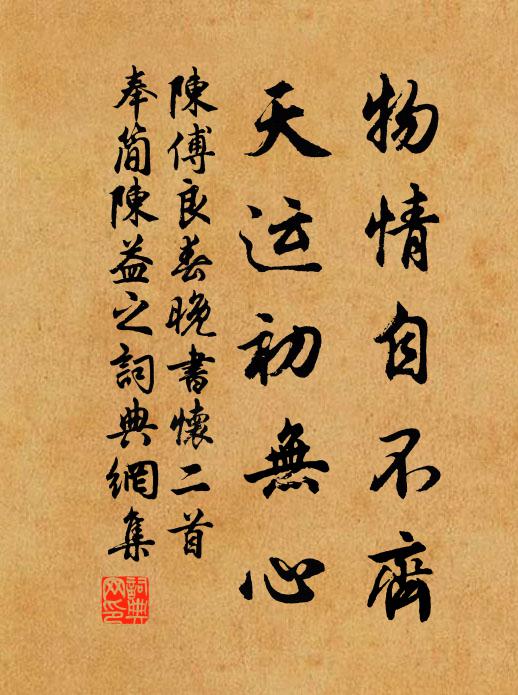 物情自不齊
天运初無心
陳傅良春晚書懷二首
奉簡陳益之詞典網集
詞典網印